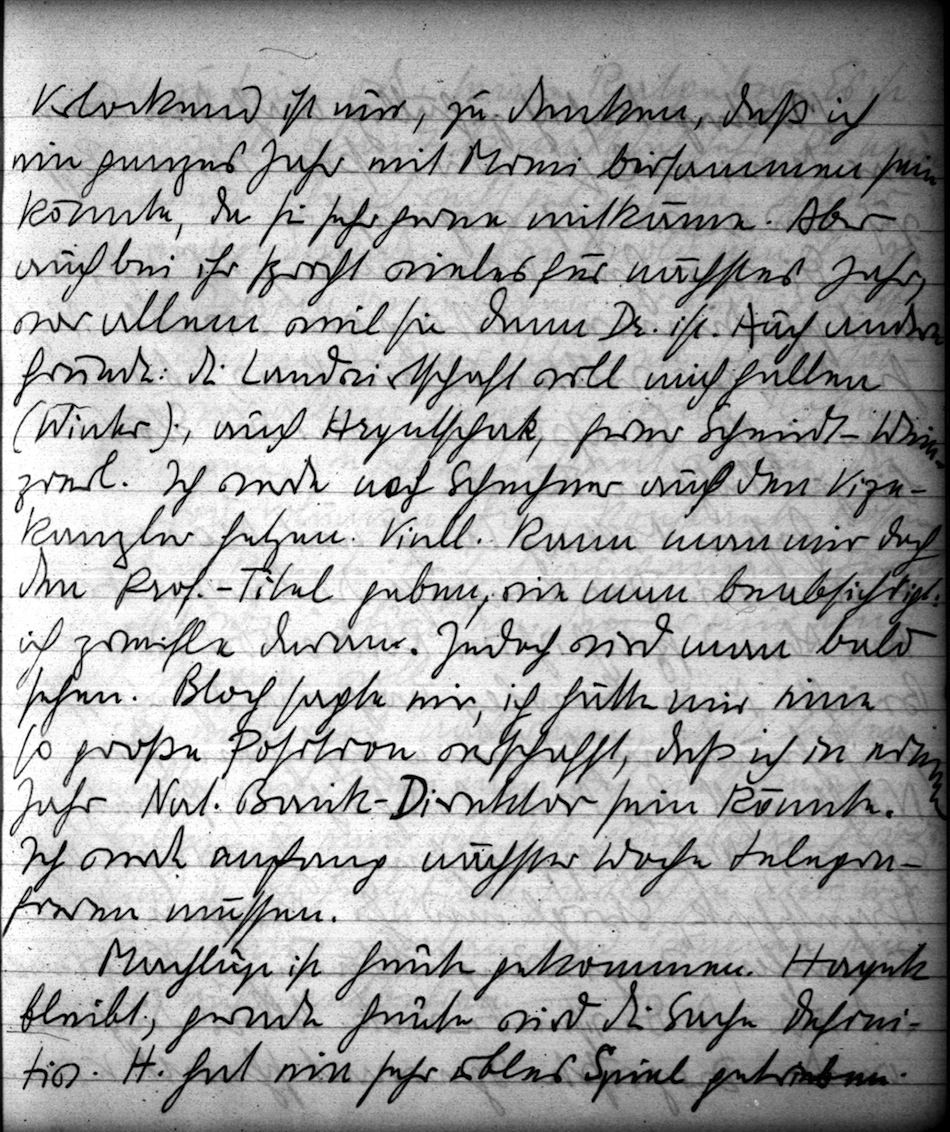 Verlockend ist nur, zu denken, daß ich
ein ganzes Jahr mit Mimi beisammen sein
könnte, da sie sehr gerne mitkäme. Aber
auch bei ihr spricht vieles für nächstes Jahr,
vor allem weil sie dann Dr. ist. Auch andere
Gründe: die Landwirtschaft soll mich halten
(Winter)., auch ferner Schmidt-Wein-
zierl. Ich werde noch Schechner auf den Vize-
kanzler hetzen. Viell. kann man mir doch
den Prof.-Titel geben, wie man beabsichtigt.
ich zweifle daran. Jedoch wird man bald
sehen. Bloch sagte mir, ich hätte mir eine
so große Position verschafft, daß ich in einem
Jahr Nat. Bank-Direktor sein könnte.
Ich werde anfang nächster Woche telegra-
fieren müssen.
Machlup ist heute gekommen. Hayek
bleibt, gerade heute wird die Sache defini-
tiv. H. hat ein sehr übles Spiel getrieben.